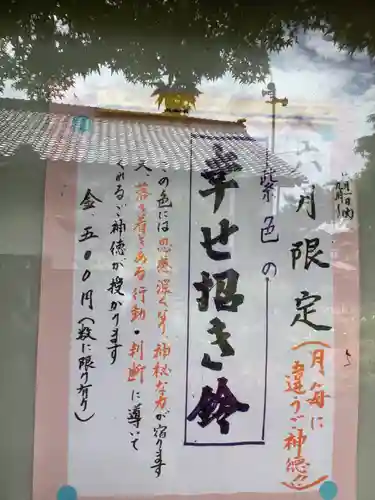 六月限定
(月毎に
違うご神徳)
紫色の
幸せ招き鈴
この色には思慮深くなり、神秘な力が宿ります
又、落ち着きある行動・判断に導いて
くれるご神徳が授かります
金、五〇〇円(数に限り有り)